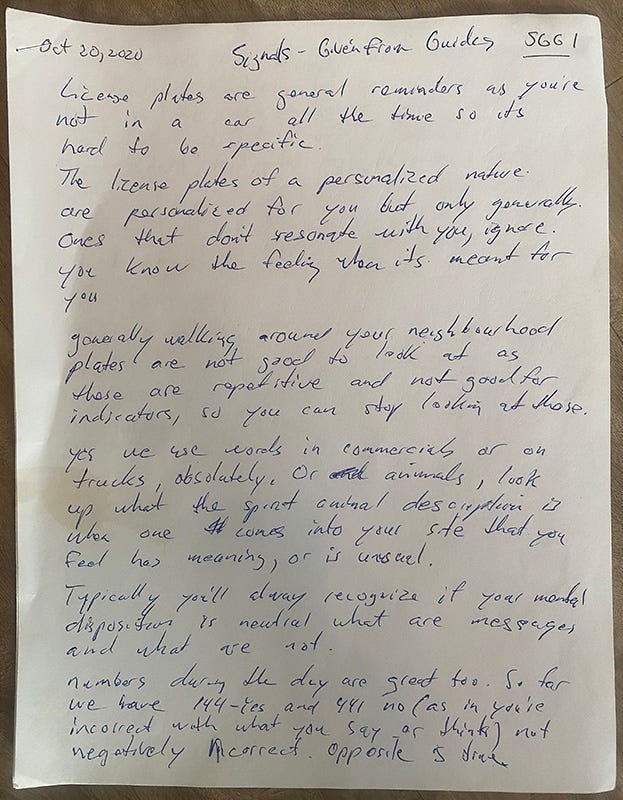 Oct 20, 2020 Signals - Given from Guides SGG 1
License plates are general reminders as you're
not in a car all the time so its
hard to be specific.
The license plates of a personalized nature.
are personalized for you but only generally.
Ones that don't resonate with you, ignore.
you know the feeling when its meant for
you
generally walking around your neighbourhood
plates are not good to look at as
those are repetitive and not good for
indicators, so you can stop looking at those.
yes we use words in commercials or on
trucks, absolutely. Or animals, look
up what the spirit animal description is
when one comes into your site that you
feel has meaning, or is unusual.
Typically you'll always recognize if your mental
disposition is neutral what are messages
and what are not.
numbers during the day are great too. So far
we have 144-Yes and 441 no (as in you're
incorrect with what you say or think) not
negatively incorrect. Opposite is true